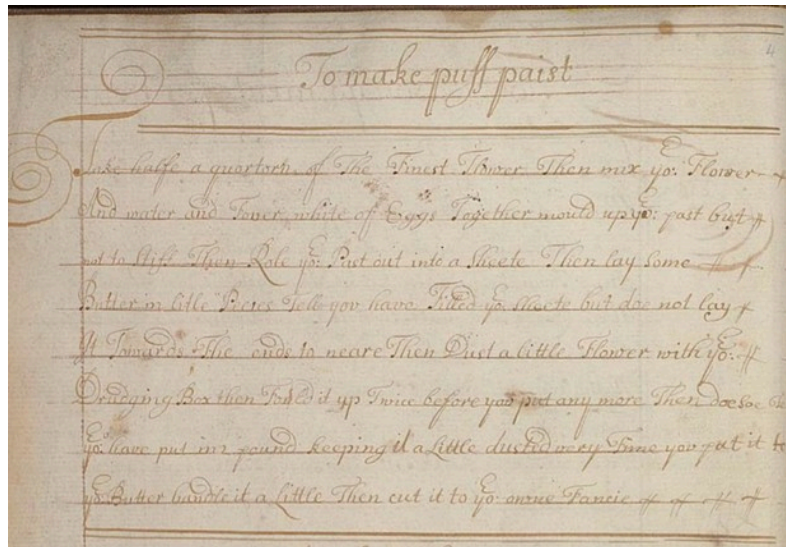 To make puff paist
4
Take halfe a quortorn of The Finest Flower Then mix yor: Flower
And water and Fower white of Eggs Together mould up yor: past but
not to stiff Then Role yor: Past out into a sheete Then lay Some
Butter in litle Peeces Tell yov have Filled yor sheete but doe not lay
It Towards The ends to neare Then Dust a little Flower with yor:
Drudging Box then Fould it up Twice before yov put any more Then doe soe
have put in pound keeping it a Little dusted very Time yov put it
Butter handle it a Little Then cut it to yor: owne Fancie